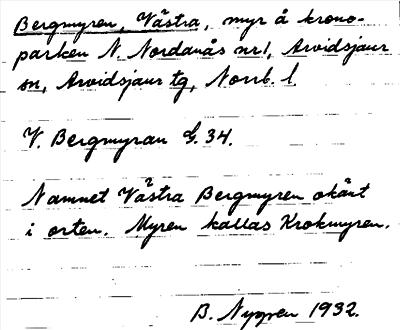 Bergmyren, Västra, myr å krono-
parken N. Nordanås nr 1, Arvidsjaur
sn, Arvidsjaur tg, Norrb. l.
V. Bergmyran G. 34.
Namnet Västra Bergmyren okänt
i orten. Myren kallas Krokmyren.
B. Nygren 1932.